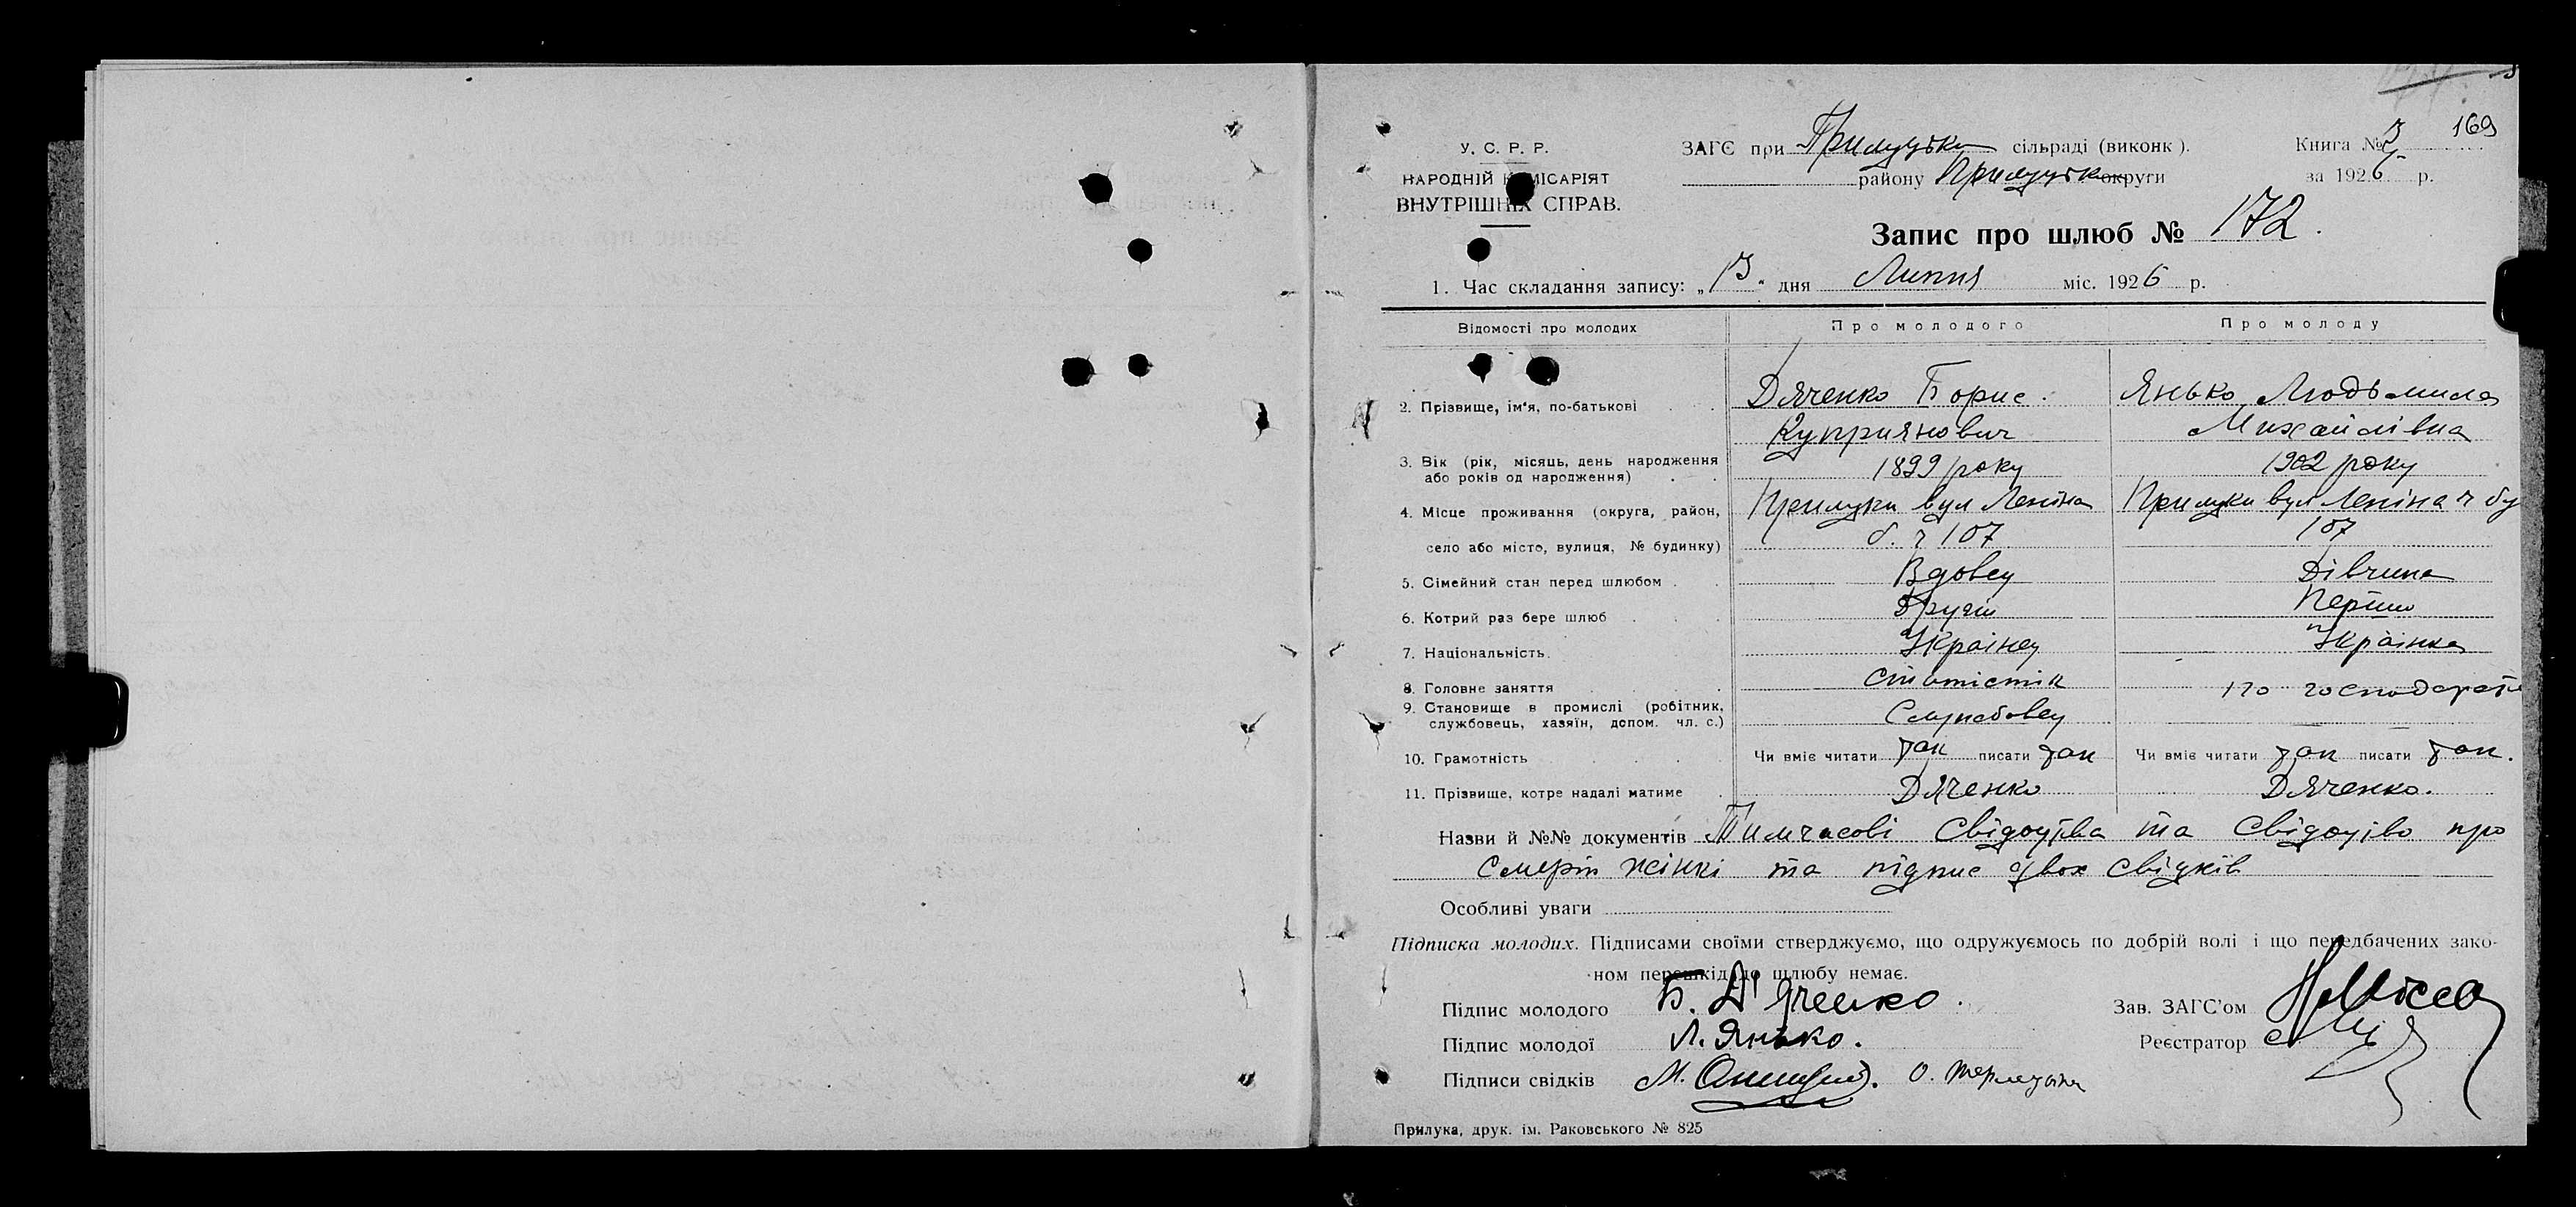 169
У. С. Р. Р.
НАРОДНІЙ КОМІСАРІЯТ
ВНУТРІШНІХ СПРАВ.
ЗАГС при Прилуцькій сільраді (виконк).
району Прилуцької округи
Книга №
за 1926 р.
Запис про шлюб № 172.
1. Час складання запису: „13" дня Липня міс. 1926 р.
Відомості про молодих Про молодого Про молоду
2. Прізвище, ім'я, по-батькові Дяченко Борис. Янько Людьмила
Куприянович Михайлівна
3. Вік (рік, місяць, день народження
або років од народження) 1899 року 1902 року
4. Місце проживання (округа, район, Прилуки вул Леніна Прилуки вул Леніна ч бу
село або місто, вулиця, № будинку) б. ч 107 107
5. Сімейний стан перед шлюбом Вдовец Дівчина
6. Котрий раз бере шлюб Другий Перший
7. Національність Українец Українка
8. Головне заняття Статистік господарст
9. Становище в промислі (робітник,
службовець, хазяїн, допом. чл. с.) Службовец —
10. Грамотність Чи вміє читати так писати так Чи вміє читати так писати так.
11. Прізвище, котре надалі матиме Дяченко Дяченко.
Назви й №№ документів Тимчасові Свідоцтва та Свідоцтво про
Смерть жінкі та підпис двох свідків
Особливі уваги
Підписка молодих. Підписами своїми стверджуємо, що одружуємось по добрій волі і що передбачених зако-
ном перешкід до шлюбу немає.
Підпис молодого Б. Д'яченко
Зав. ЗАГС'ом
Підпис молодої Л. Янько.
Реєстратор
Підписи свідків М. О.
Прилука, друк. ім. Раковського № 825